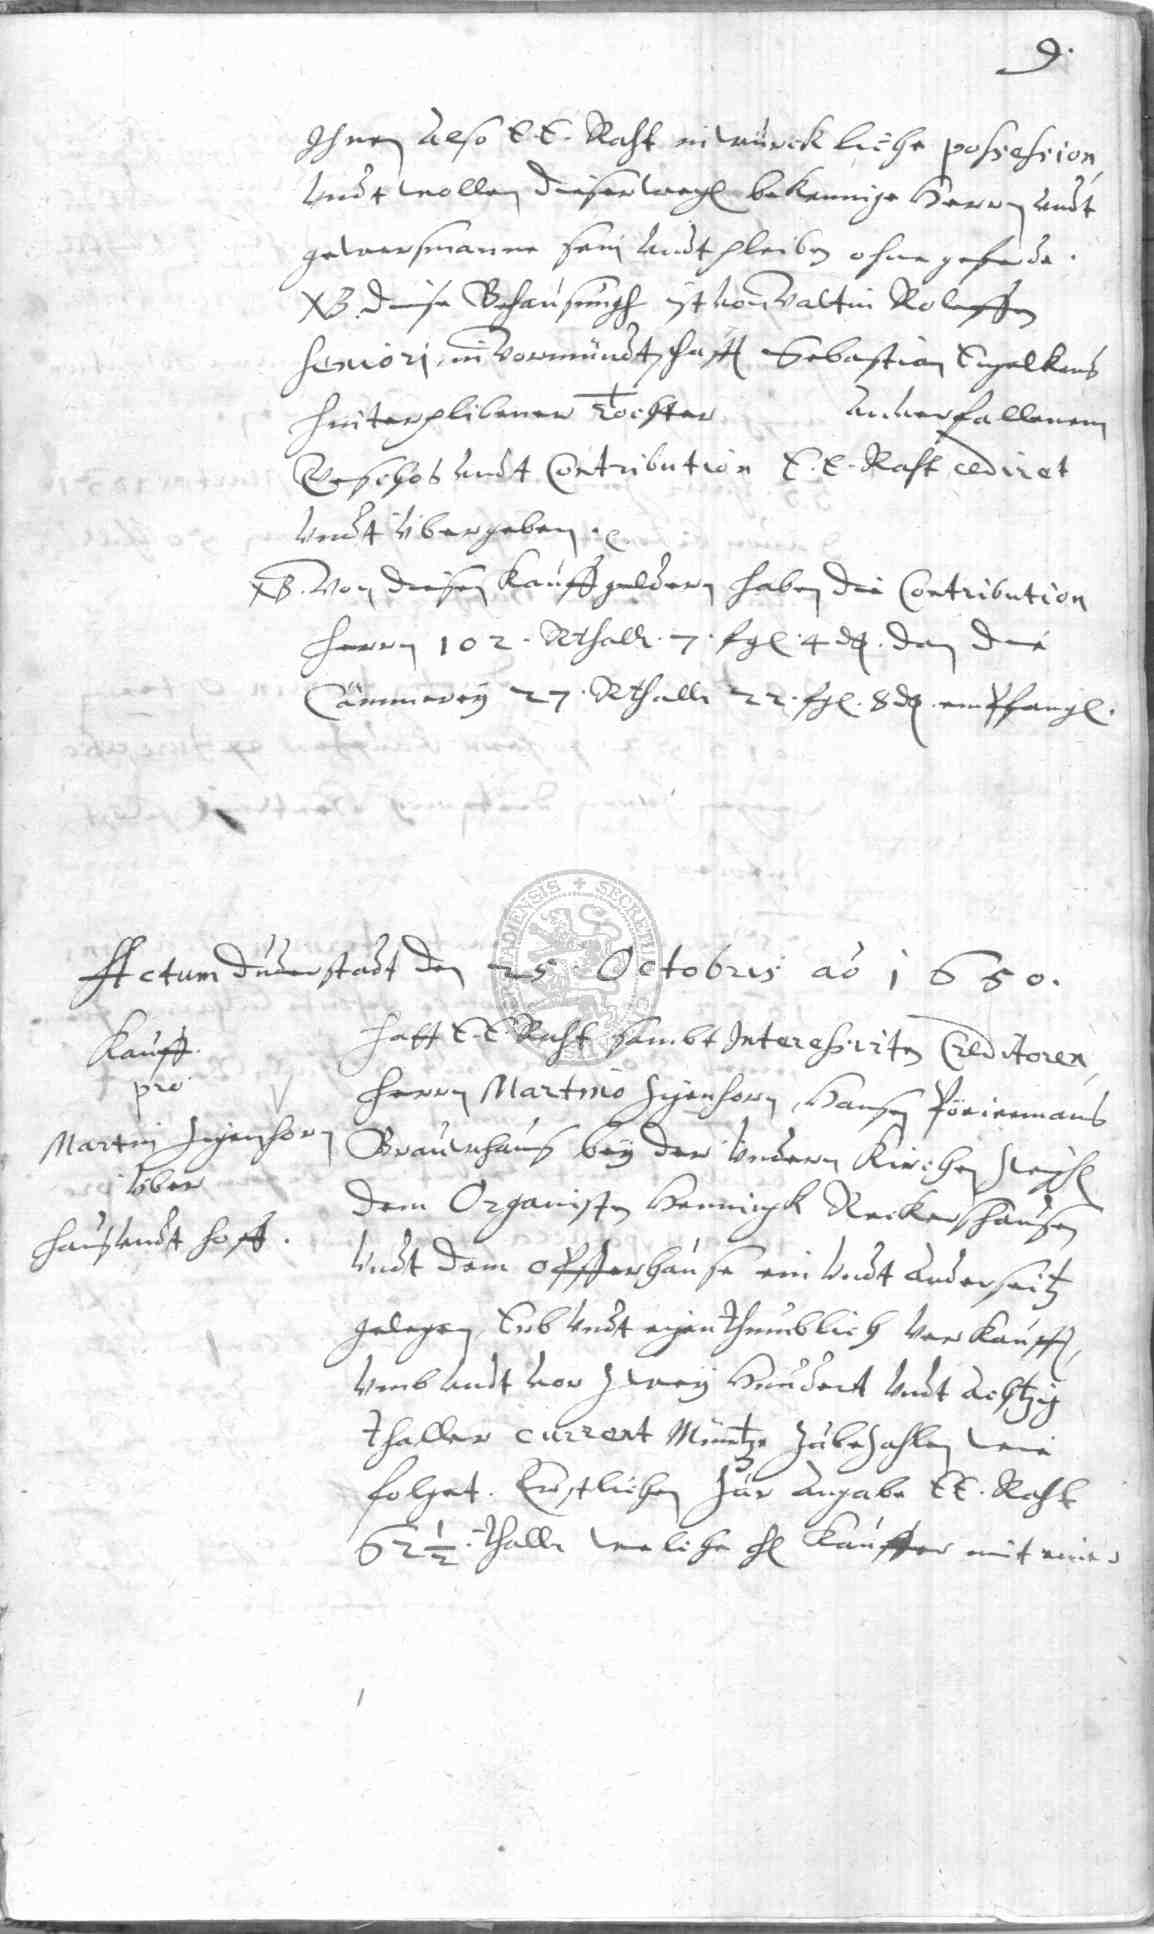 9.
Ihnen also E. E. Raht in würckliche possession,
undt wollen dieserwegen bekennige Herrn undt
gewersmanne sein undt pleiben ohne geferde.
NB. diese Behausungh ist von Valtin Roleffen
seniori, in Vormundtschafft Sebastian Engelkens
hinterplibener Tochter unverfallenem
Geschos undt Contribution E. E. Raht cediret
undt übergeben.
NB. Von diesen Kauffgeldern haben die Contribution
herrn 102. Rthalr. 7. fgl. 4 d. dan die
Cämmerey 27. Rthalr 22. fgl. 8 d. empfangen.
Actum Duderstadt den 25 Octobris ao 1650.
Kauff
pro
Martin Zigenhorn
über
haus undt hoff.
Hatt E. E. Raht sambt Interessirten Creditoren,
herrn Martino Zigenhorn, Hansen
Brauwhaus bey der Undern Kirchen zwischen
dem Organisten Henningk Reckershausen
undt dem Opfferhause ein undt anderseitz
gelegen, Erb undt eigenthumblich verkaufft,
umb undt vor zwey Hundert undt achtzig
thaller current Müntze zubezahlen wie
folget. Erstlichen zur angabe EE. Raht
62 1/2. thalr welche H. Kauffer mit einer